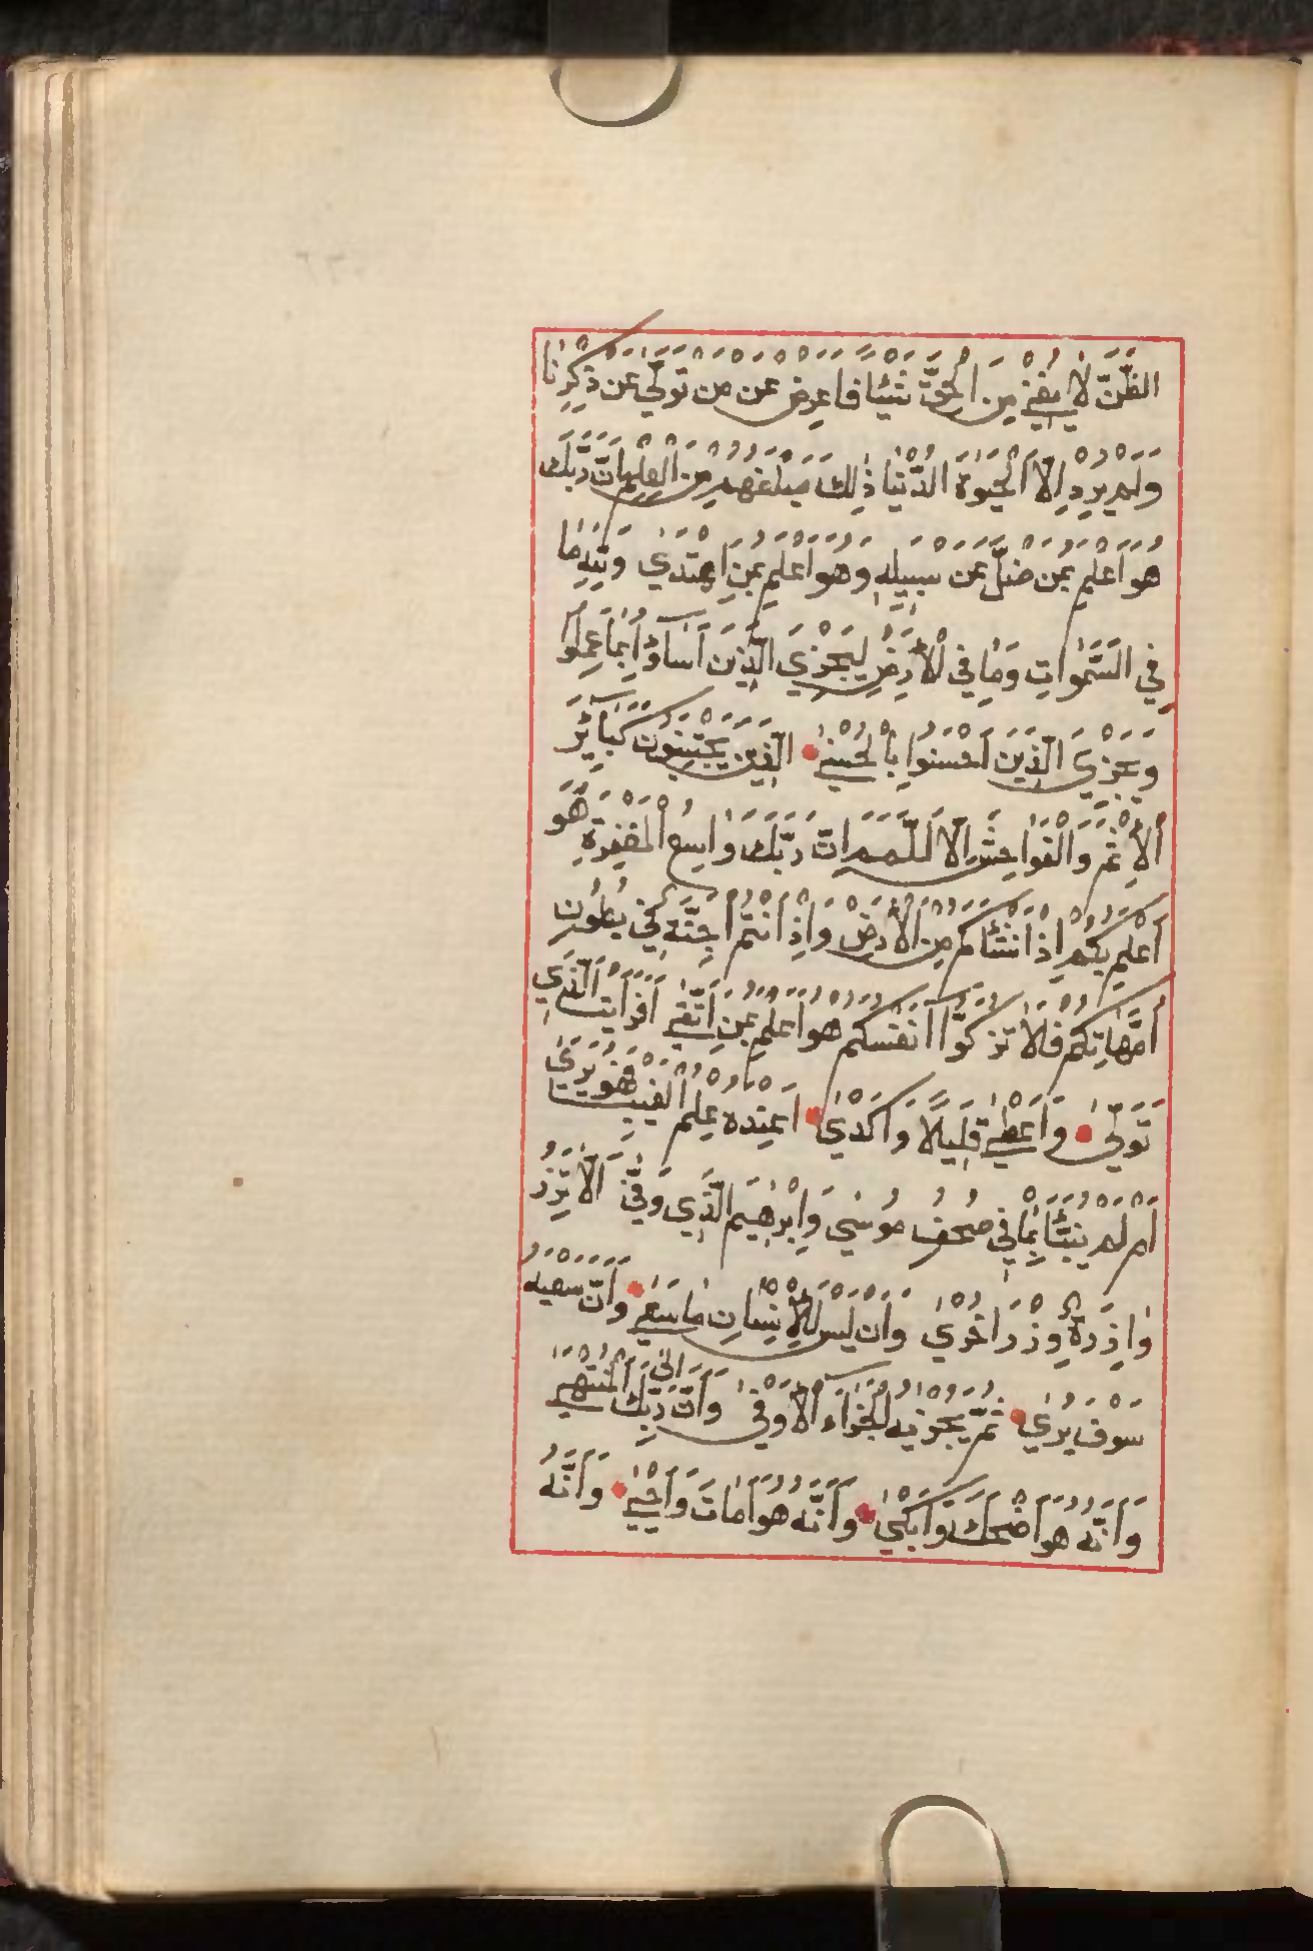 الظَّنَّ لَا يُغْنِي مِنَ الْحَقِّ شَيْئًا فَاَعْرِضْ عَنْ مَنْ تَوَلّٰى عَنْ ذِكْرِنَا
وَلَمْ يُرِدْ اِلَّا الْحَيٰوةَ الدُّنْيَا ذٰلِكَ مَبْلَغُهُمْ مِنَ الْعِلْمِ اِنَّ رَبَّكَ
هُوَ اَعْلَمُ بِمَنْ ضَلَّ عَنْ سَبِيلِهِ وَهُوَ اَعْلَمُ بِمَنِ اهْتَدٰى وَلِلّٰهِ مَا
فِي السَّمٰوَاتِ وَمَا فِي الْاَرْضِ لِيَجْزِيَ الَّذِينَ اَسَآؤُا بِمَا عَمِلُوا
وَيَجْزِيَ الَّذِينَ اَحْسَنُوا بِالْحُسْنٰى الَّذِينَ يَجْتَنِبُونَ كَبَآئِرَ
الْاِثْمِ وَالْفَوَاحِشَ اِلَّا اللَّمَمَ اِنَّ رَبَّكَ وَاسِعُ الْمَغْفِرَةِ هُوَ
اَعْلَمُ بِكُمْ اِذْ اَنْشَاَكُمْ مِنَ الْاَرْضِ وَاِذْ اَنْتُمْ اَجِنَّةٌ فِي بُطُونِ
اُمَّهَاتِكُمْ فَلَا تُزَكُّوا اَنْفُسَكُمْ هُوَ اَعْلَمُ بِمَنِ اتَّقٰى اَفَرَاَيْتَ الَّذِي
تَوَلّٰى وَاَعْطٰى قَلِيلًا وَاَكْدٰى اَعِنْدَهُ عِلْمُ الْغَيْبِ فَهُوَ يَرٰى
اَمْ لَمْ يُنَبَّاْ بِمَا فِي صُحُفِ مُوسٰى وَاِبْرٰهِيمَ الَّذِي وَفّٰى اَلَّا تَزِرُ
وَازِرَةٌ وِزْرَ اُخْرٰى وَاَنْ لَيْسَ لِلْاِنْسَانِ مَا سَعٰى وَاَنَّ سَعْيَهُ
سَوْفَ يُرٰى ثُمَّ يُجْزٰيهُ الْجَزَآءَ الْاَوْفٰى وَاَنَّ رَبِّكَ اِلٰى الْمُنْتَهٰى
وَاَنَّهُ هُوَ اَضْحَكَ وَاَبْكٰى وَاَنَّهُ هُوَ اَمَاتَ وَاَحْيٰى وَاَنَّهُ